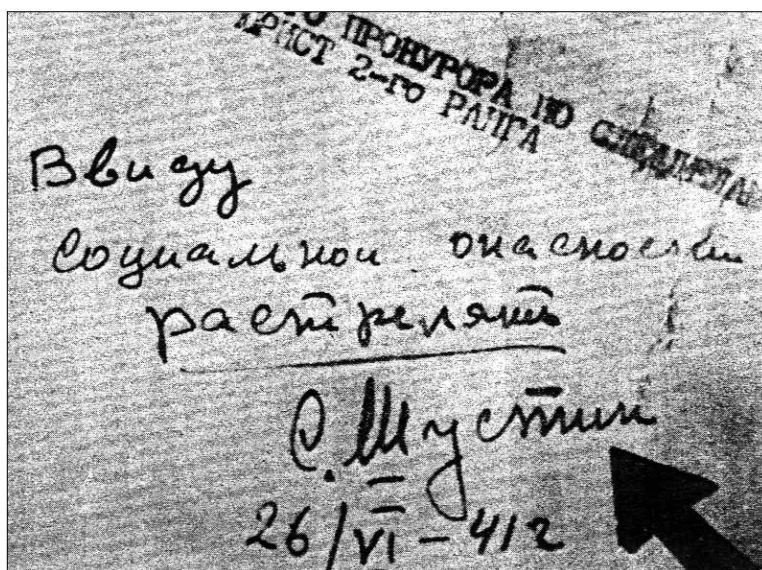 ПРОКУРОРА ПО
ЮРИСТ 2-го РАНГА
Ввиду
социальной опасности
растрелять
С. Шустин
26/VI-41г